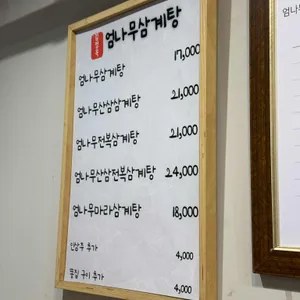 엄나무삼계탕
엄나무삼계탕 17,000
엄나무산삼삼계탕 21,000
엄나무전복삼계탕 21,000
엄나무산삼전복삼계탕 24,000
엄나무마라삼계탕 18,000
인삼주 추가 4,000
똥집 구이 추가 4,000
엄나무